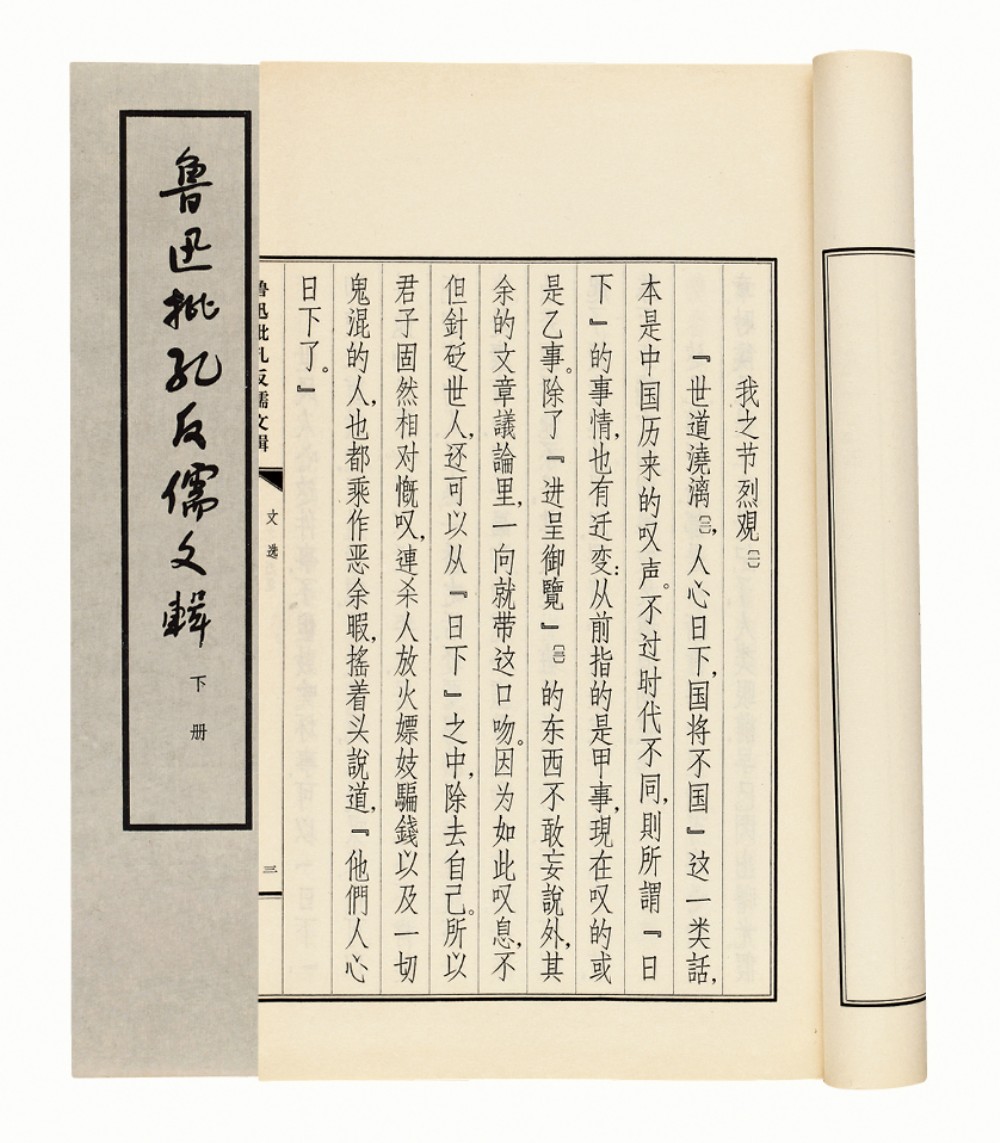 鲁迅批孔反儒文輯
下册
我之节烈观〔一〕
『世道澆漓〔二〕，人心日下，国将不国』这一类話，
本是中国历来的叹声。不过时代不同，則所謂『日
下』的事情，也有迁变：从前指的是甲事，現在叹的或
是乙事。除了『进呈御覽』〔三〕的东西不敢妄說外，其
余的文章議論里，一向就带这口吻。因为如此叹息，不
但針砭世人，还可以从『日下』之中，除去自己。所以
君子固然相对慨叹，連杀人放火嫖妓騙錢以及一切
鬼混的人，也都乘作恶余暇，搖着头說道，『他們人心
日下了。』
鲁迅批孔反儒文輯
文选
三